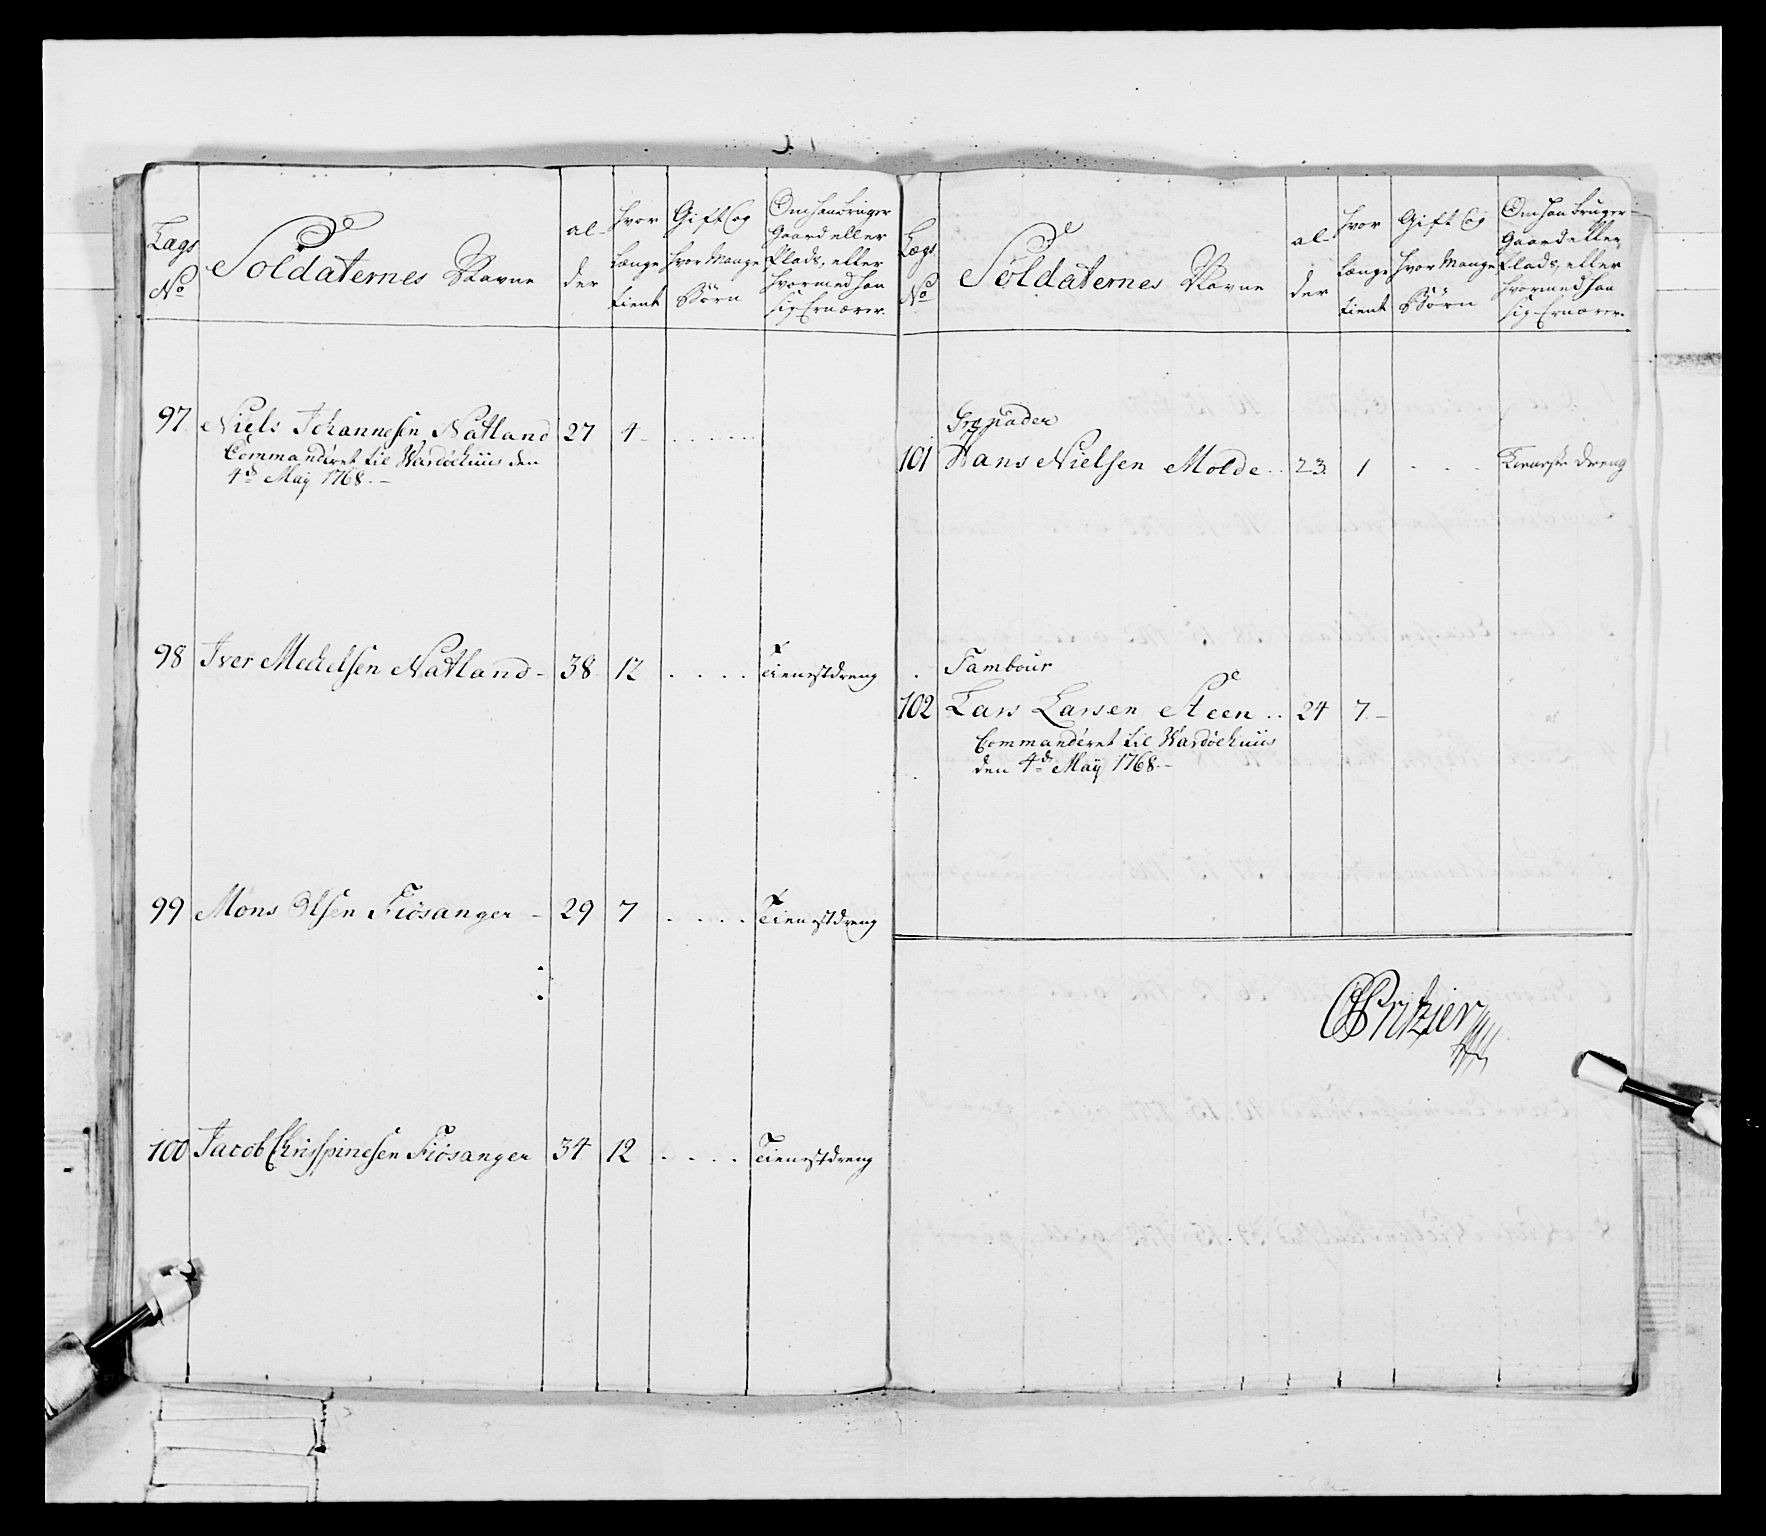 Lægs No
Soldaternes Navne
al-der
hvor længe tient
Gift og hvor Mange Börn
Om han bruger Gaard eller Plads, eller hvormed han sig Ernærer.
97 Niels Johannesen Natland 27 4 -
Commanderet til Wardöehuus den
4de Maÿ 1768. -
98 Iver Michelsen Natland - 38 12 . . . . Tienestdreng
99 Mons Olsen Fiösanger - 29 7 . . . . Tienestdreng
100 Jacob Chrispinesen Fiösanger 34 12 . . . . Tienestdreng
Lægs No
Soldaternes Navne
al-der
hvor længe tient
Gift og hvor Mange Börn
Om han bruger Gaard eller Plads, eller hvormed han sig Ernærer.
Grenader
101 Hans Nielsen Molde . . 23. 1 . . . dreng
Tambour
102 Lars Larsen Steen . . 24 7. -
Commanderet til Wardöehuus
den 4de Maÿ 1768. -